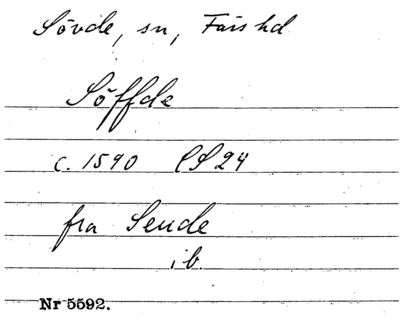 Sövde, sn, Färs hd
Söffde
c. 1590 PS 24
fra Seude
ib.
Nr 5592.